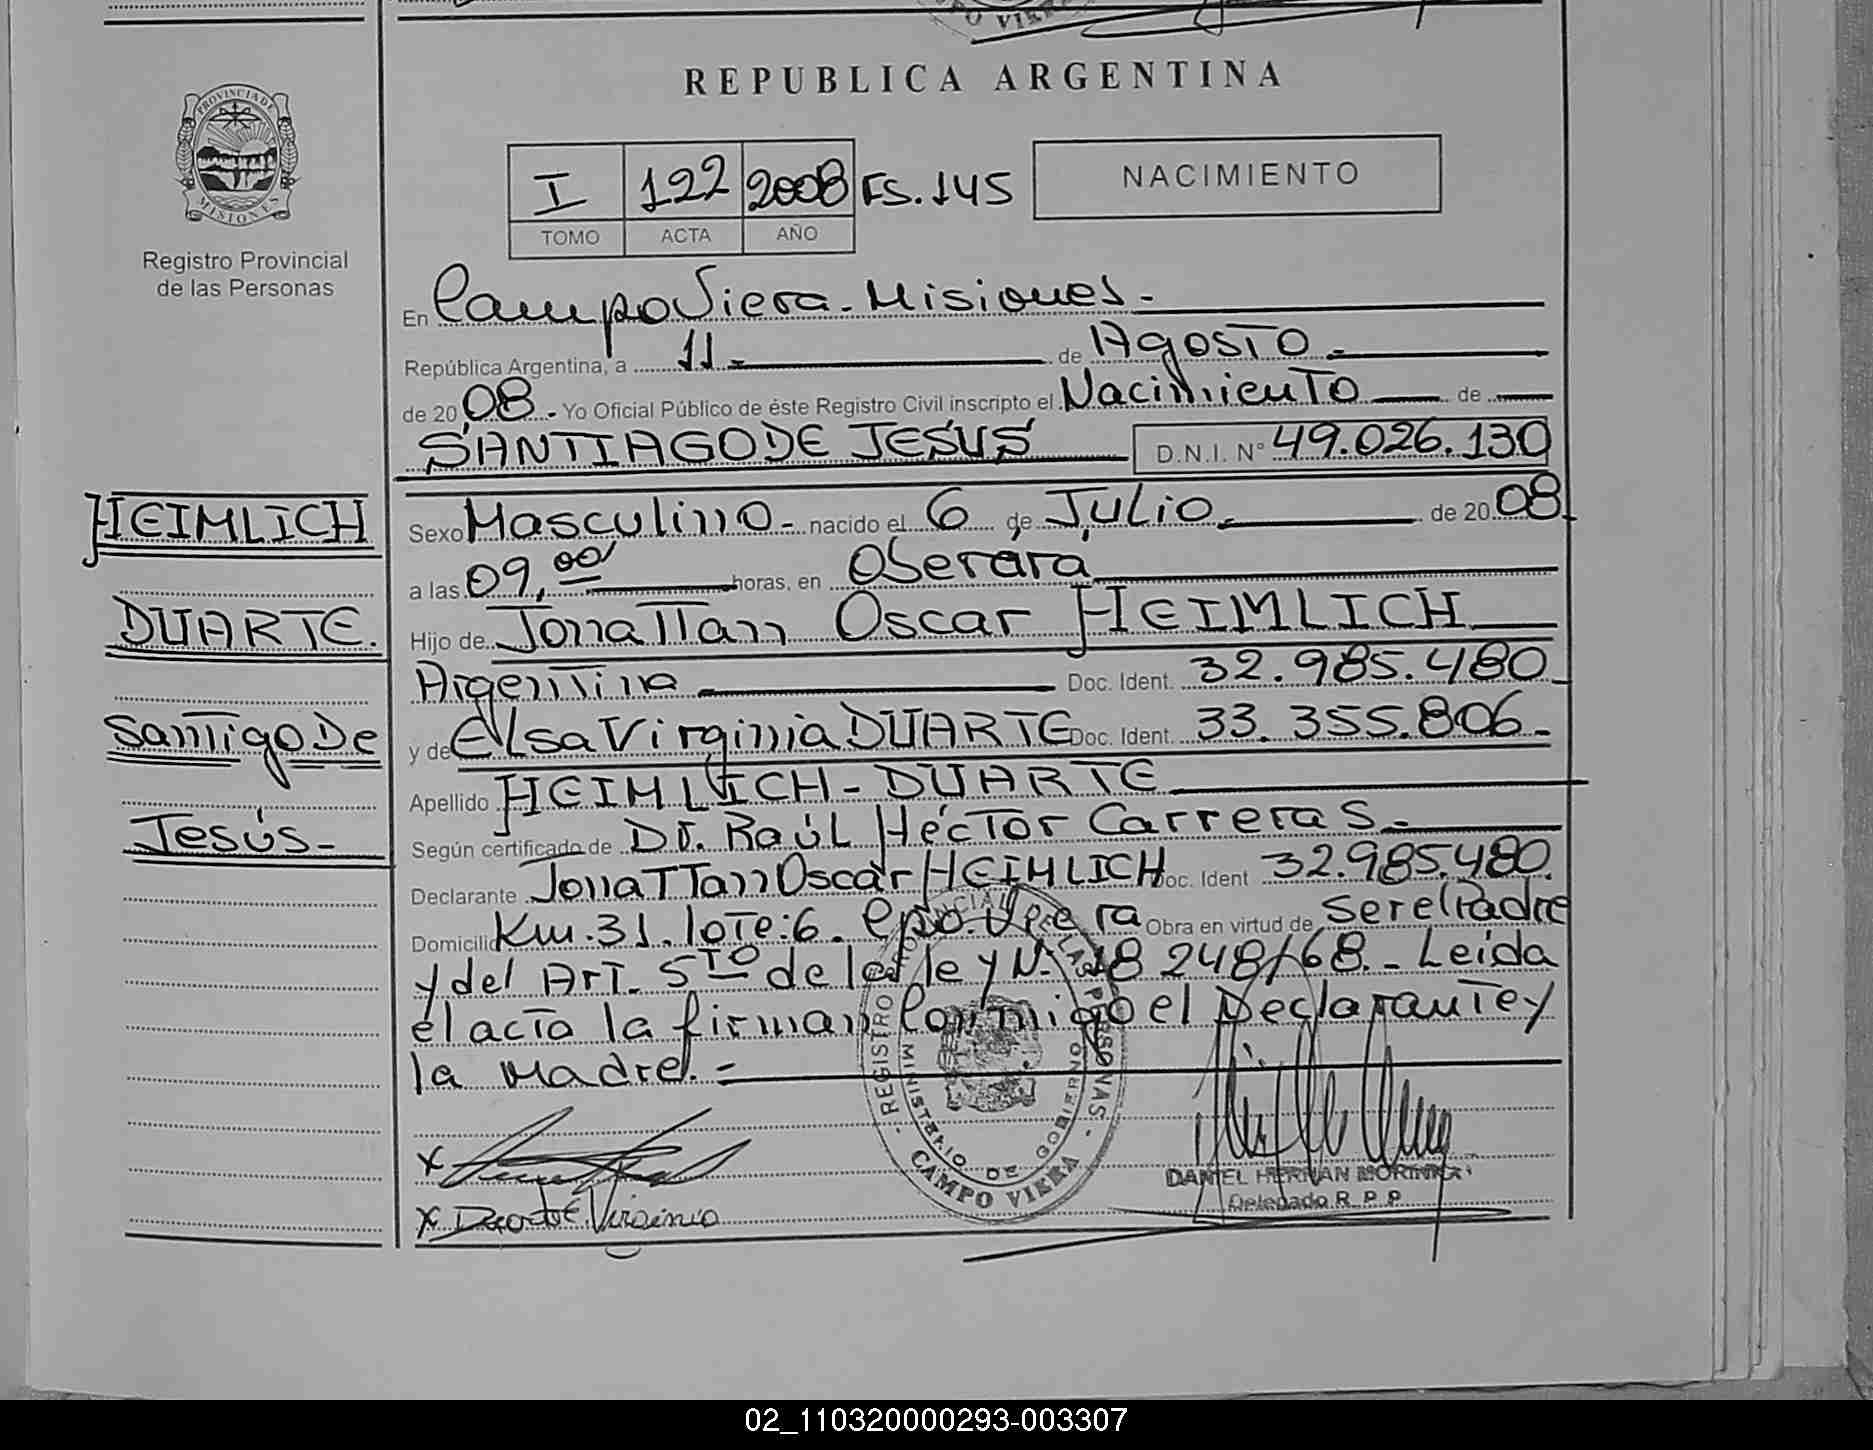 CAMPO VIERA
REPUBLICA ARGENTINA
PROVINCIA DE
MISIONES
Registro Provincial
de las Personas
I 122 2008 FS. 145
TOMO ACTA AÑO
NACIMIENTO
En Campo Viera - Misiones.-
República Argentina, a 11.- de Agosto.-
de 2008.- Yo Oficial Público de éste Registro Civil inscripto el Nacimiento de
SANTIAGO DE JESUS D.N.I. Nº 49.026.130
HEIMLICH
DUARTE.
SantigoDe
Jesús-
Sexo Masculino- nacido el 6 de Julio. de 2008
a las 09,00 horas, en Oberára
Hijo de Jonattan Oscar HEIMLICH
Argentina Doc. Ident. 32.985.480
y de Elsa Virginia DUARTE Doc. Ident. 33.355.806-
Apellido HEIMLICH - DUARTE
Según certificado de Dr. Raúl Héctor Carreras.-
Declarante Jonattan Oscar HEIMLICH Doc. Ident 32.985.480.
Domicilio Km. 31. lote: 6. Cpo. Viera Obra en virtud de ser el Padre
y del Art. 5to de la ley N. 18 248/68.- Leída
el acta la firman Conmigo el Declarante y
la Madre.-
REGISTRO PROVINCIAL DE LAS PERSONAS
MINISTERIO DE GOBIERNO
CAMPO VIERA
X
X Duarte Virginia
DANIEL HERNAN
Delegado R. P. P.
02_110320000293-003307